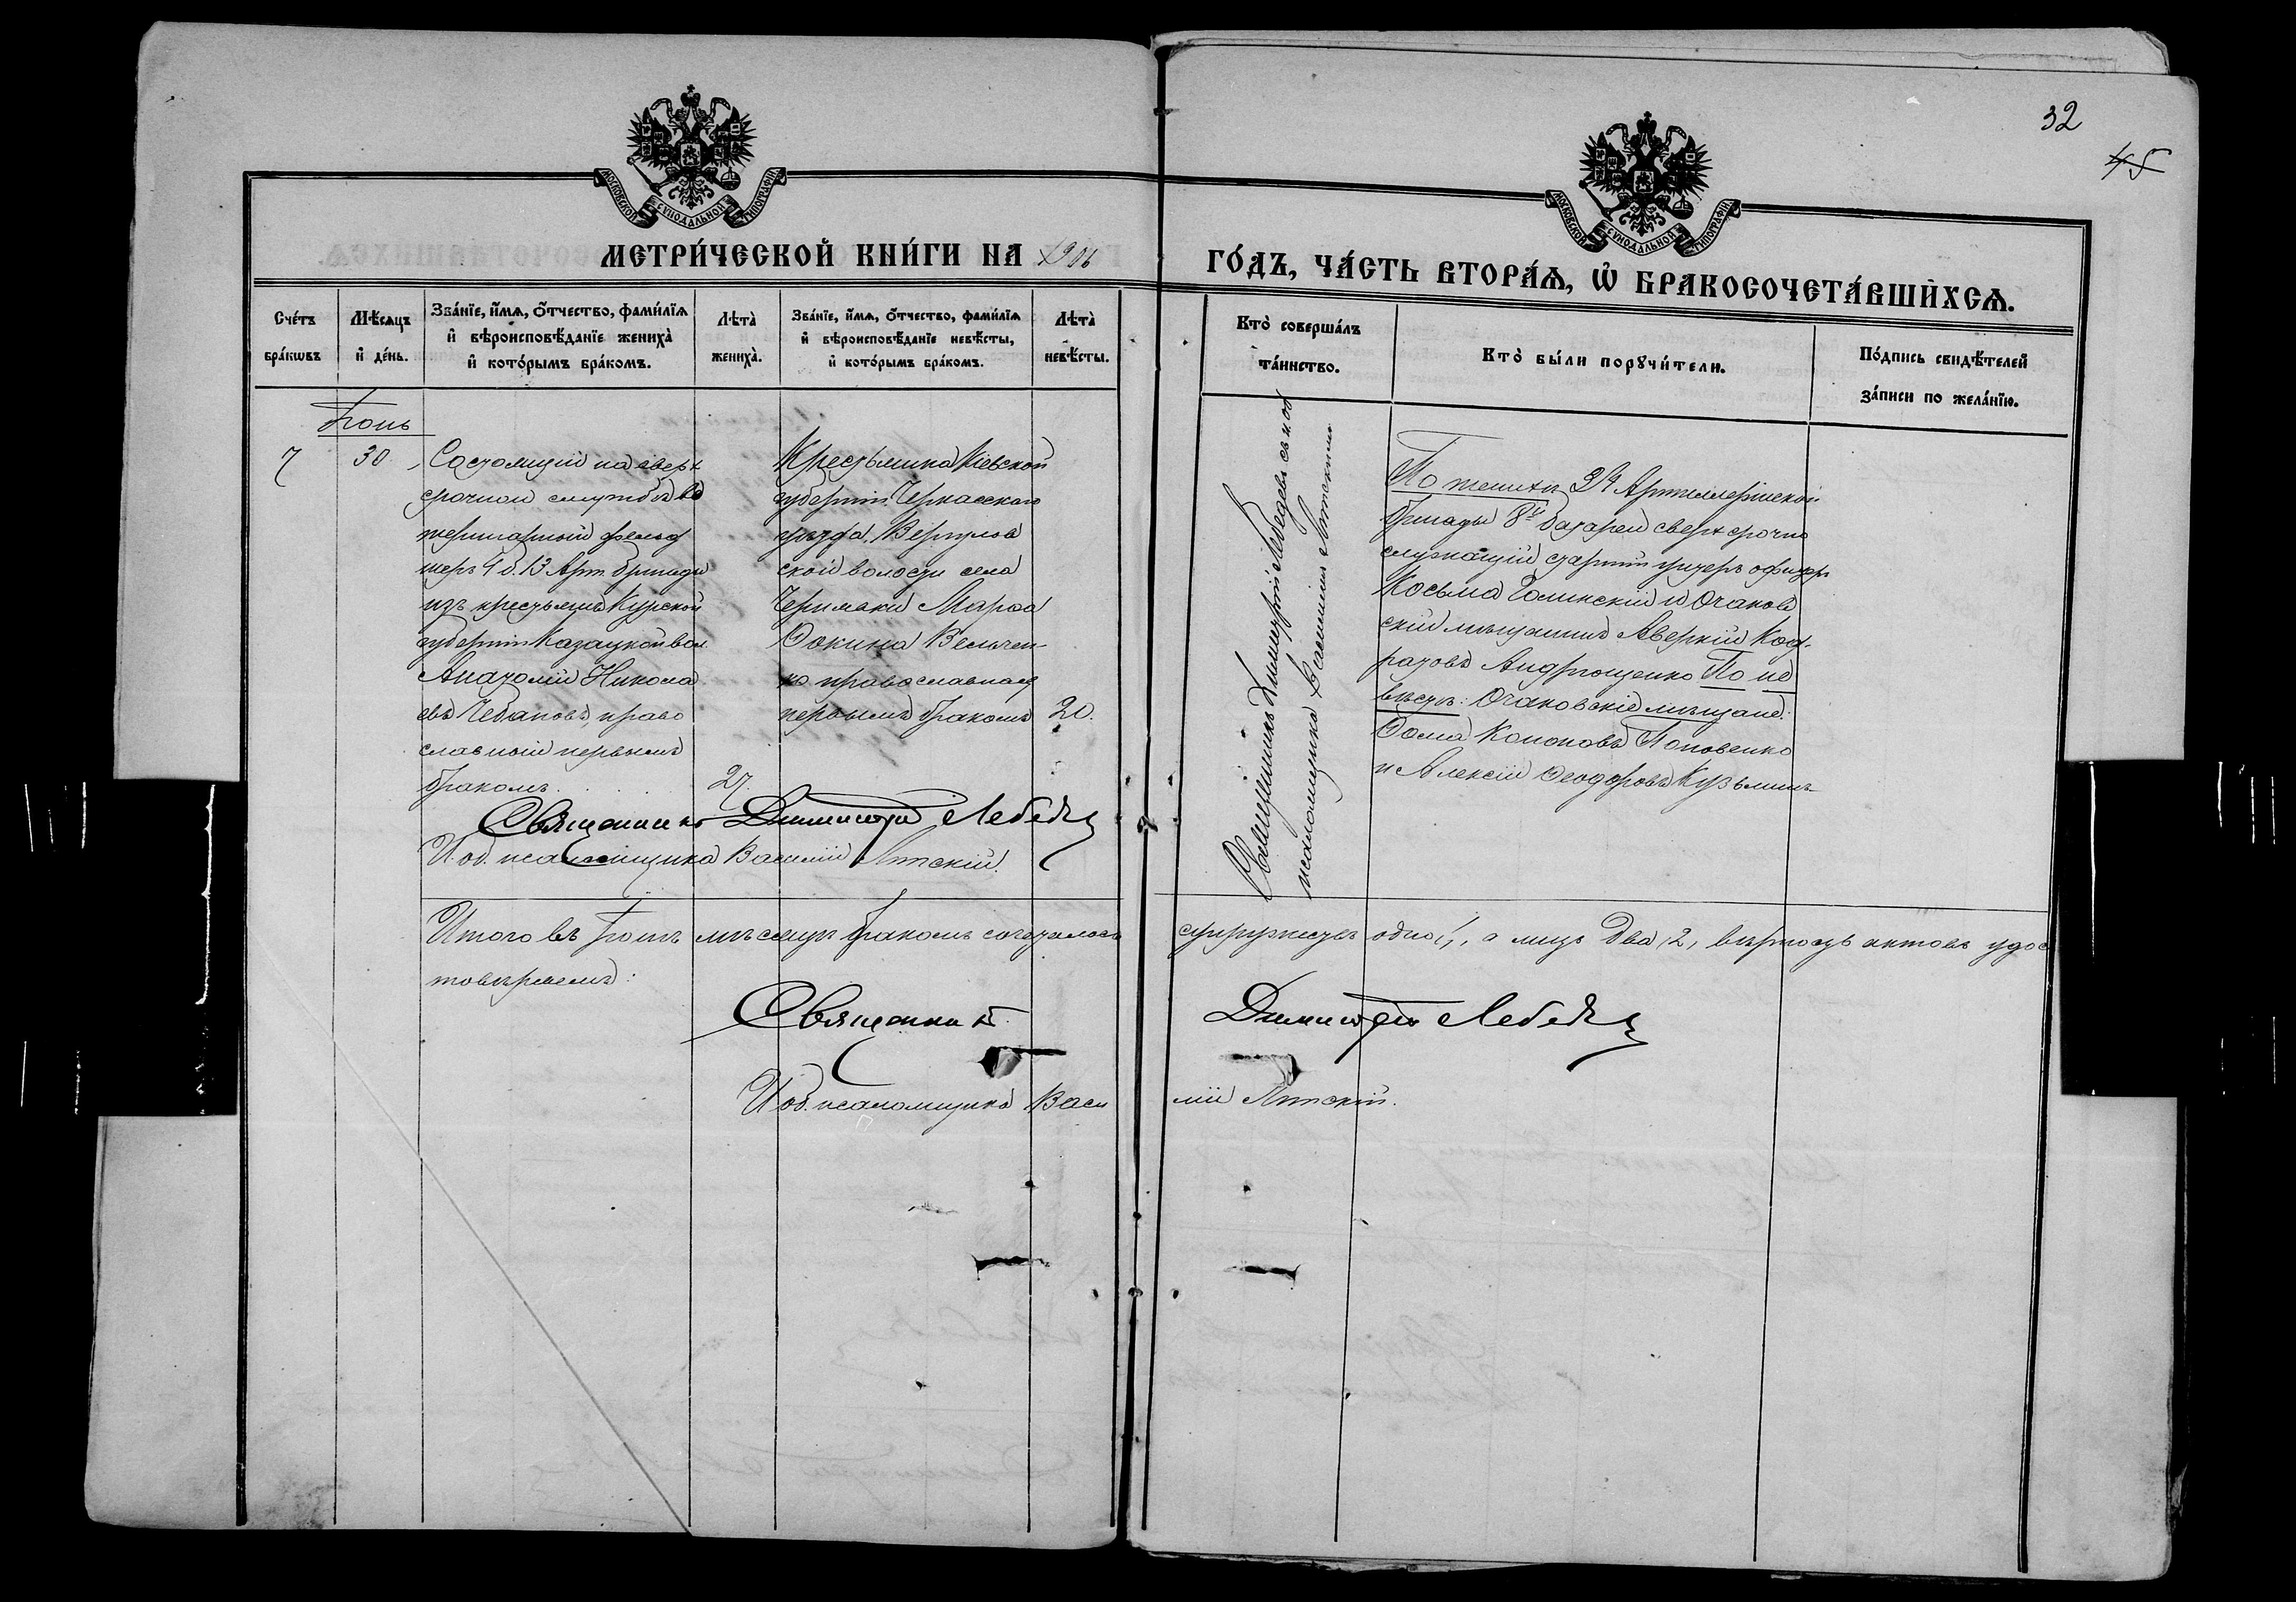 32
45
МОСКОВСКОЙ СУНОДАЛЬНОЙ ТИПОГРАФІИ
МОСКОВСКОЙ СУНОДАЛЬНОЙ ТИПОГРАФІИ
МЕТРИ́ЧЕСКОЙ КНИ́ГИ НА 1906
ГО́ДЪ, ЧА́СТЬ ВТОРА́Ѧ, Ѽ БРАКОСОЧЕТА́ВШИХСѦ.
Сче́тъ
бра́кѡвъ
Мѣ́сѧцъ
и҆ де́нь.
Зва́нїе, и҆́мѧ, ѻ҆́тчество, фами́лїѧ
и҆ вѣроисповѣ́данїе жениха̀
и҆ кото́рымъ бра́комъ.
Лѣта̀
жениха̀.
Зва́нїе, и҆́мѧ, ѻ҆́тчество, фами́лїѧ
и҆ вѣроисповѣ́данїе невѣ́сты,
и҆ кото́рымъ бра́комъ.
Лѣта̀
невѣ́сты.
Кто̀ соверша́лъ
та́инство.
Кто̀ бы́ли порꙋчи́тели.
По́дпись свидѣ́телей
за́писи по жела́нїю.
Іюнь
7
30
Состоящій на сверх
срочной службѣ ве
теринарный фельд
шеръ 4 б. 13 Арт. бригады
изъ крестьянъ Курской
губерніи Казацкой вол.
Анатолій Никола
евъ Чебановъ, право
славный первымъ
бракомъ.
27.
Крестьянка Кіевской
губерніи Черкасскаго
уѣзда,
ской волости села
Марѳа
Ѳокина
ко православная
первымъ бракомъ
20.
Священникъ Димитрій Лебедевъ
И. об. псаломщика Василій
Священникъ Димитрій Лебедевъ съ и. об.
псаломщика Василіемъ
По женихѣ: 34 Артиллерійской
бригады 8й батареи сверхсрочно
служащій старшій унтеръ офицеръ
Косьма Голинскій и Очаков
скій мѣщанинъ Аверкій Код-
ратовъ Андрющенко По не
вѣстѣ: Очаковскіе мѣщане:
Ѳома Кононовъ Поповенко
и Алексій Ѳеодоровъ Кузьминъ
Итого въ Іюнѣ мѣсяцѣ бракомъ сочеталось
супружествъ одно /1/, а лицъ два /2/, вѣрность актовъ удос
товѣряемъ:
Священникъ Димитрій Лебедевъ
И об. псаломщика Васи
лій